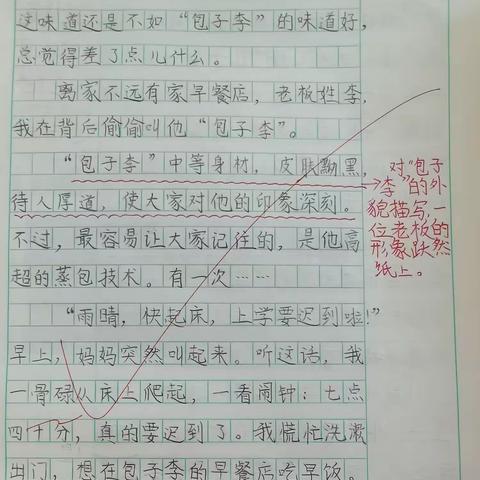 这味道还是不如“包子李”的味道好，
总觉得差了点儿什么。
离家不远有家早餐店，老板姓李，
我在背后偷偷叫他“包子李”。
“包子李”中等身材，皮肤黝黑，
待人厚道，使大家对他的印象深刻。
不过，最容易让大家记住的，是他高
超的蒸包技术。有一次……
“雨晴，快起床，上学要迟到啦！”
早上，妈妈突然叫起来。听这话，我
一骨碌从床上爬起，一看闹钟：七点
四十分，真的要迟到了。我慌忙洗漱
出门，想在包子李的早餐店吃早饭。
对“包子
李”的外
貌描写，一
位老板的
形象跃然
纸上。